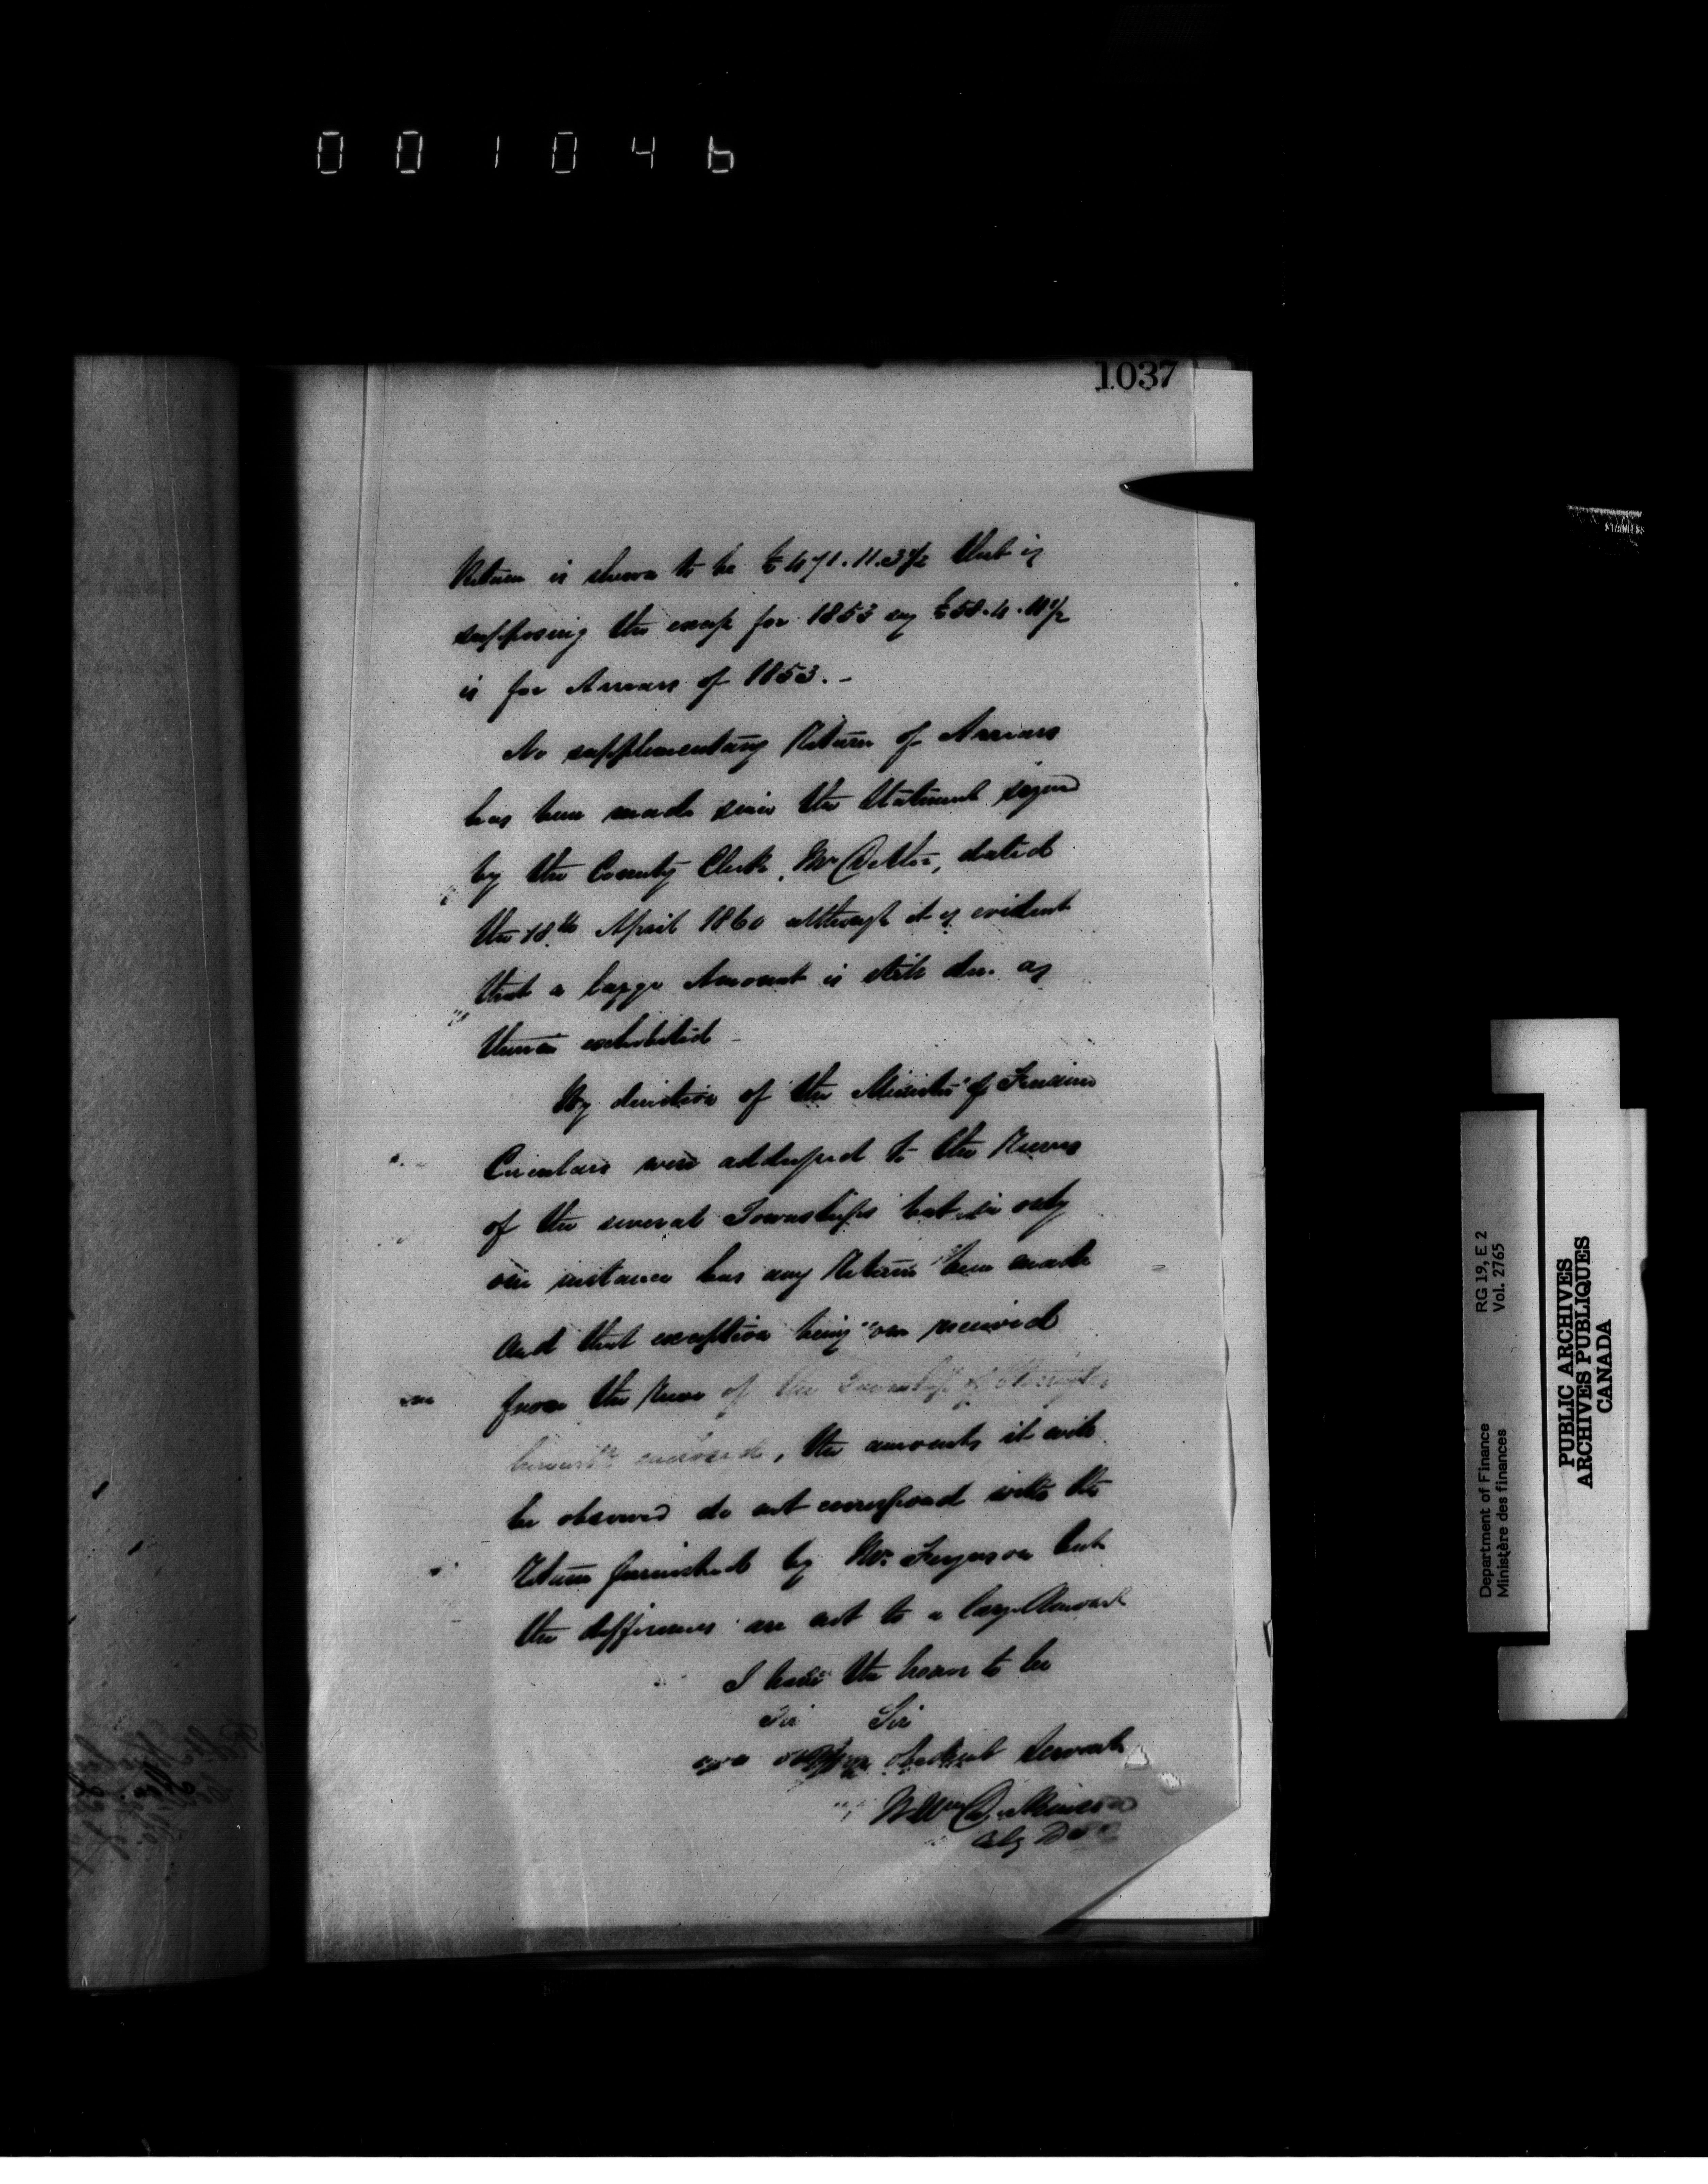 001046
1037
Return is shewn to be £471.11.3½ that is
supposing the excess for 1853 say £58.4.11½
is for Arrears of 1853.-
No supplementary Return of Arrears
has been made since the Statement signed
by the County Clerk, Mr dated
the 18th April 1860 although it is evident
that a large Amount is still due as
therein exhibited -
By direction of the Minister of Finance
Circulars were addressed to the Reeves
of the several Townships but in only
one instance has any Return been made
and that exception being one received
from the Reeve of the Township of
herewith enclosed, the amounts it will
be observed do not correspond with the
Return furnished by Mr. Ferguson but
the differences are not to a large Amount
I have the honor to be
Sir
obedient Servant
STAINLESS
Department of Finance RG 19, E 2
Ministère des finances Vol. 2765
PUBLIC ARCHIVES
ARCHIVES PUBLIQUES
CANADA